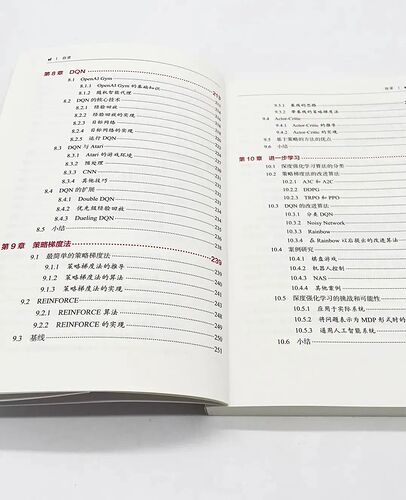 目录
第8章 DQN 213
8.1 OpenAI Gym
8.1.1 OpenAI Gym 的基础知识
8.1.2 随机智能代理
8.2 DQN 的核心技术
8.2.1 经验回放
8.2.2 经验回放的实现
8.2.3 目标网络
8.2.4 目标网络的实现
8.2.5 运行 DQN
8.3 DQN 与 Atari
8.3.1 Atari 的游戏环境
8.3.2 预处理
8.3.3 CNN
8.3.4 其他技巧
8.4 DQN 的扩展
8.4.1 Double DQN
8.4.2 优先级经验回放
8.4.3 Dueling DQN
8.5 小结
第9章 策略梯度法 239
9.1 最简单的策略梯度法
9.1.1 策略梯度法的推导
9.1.2 策略梯度法的算法
9.1.3 策略梯度法的实现
9.2 REINFORCE 248
9.2.1 REINFORCE 算法 249
9.2.2 REINFORCE 的实现 250
9.3 基线 251
目录
9.3.1 基线的思路
9.3.2 带基线的策略梯度法
9.4 Actor-Critic
9.4.1 Actor-Critic 的推导
9.4.2 Actor-Critic 的实现
9.5 基于策略的方法的优点
9.6 小结
第10章 进一步学习
10.1 深度强化学习算法的分类
10.2 策略梯度法的改进算法
10.2.1 A3C 和 A2C
10.2.2 DDPG
10.2.3 TRPO 和 PPO
10.3 DQN 的改进算法
10.3.1 分类 DQN
10.3.2 Noisy Network
10.3.3 Rainbow
10.3.4 在 Rainbow 以后提出的改进算法
10.4 案例研究
10.4.1 棋盘游戏
10.4.2 机器人控制
10.4.3 NAS
10.4.4 其他案例
10.5 深度强化学习的挑战和可能性
10.5.1 应用于实际系统
10.5.2 将问题表示为 MDP 形式时的
10.5.3 通用人工智能系统
10.6 小结